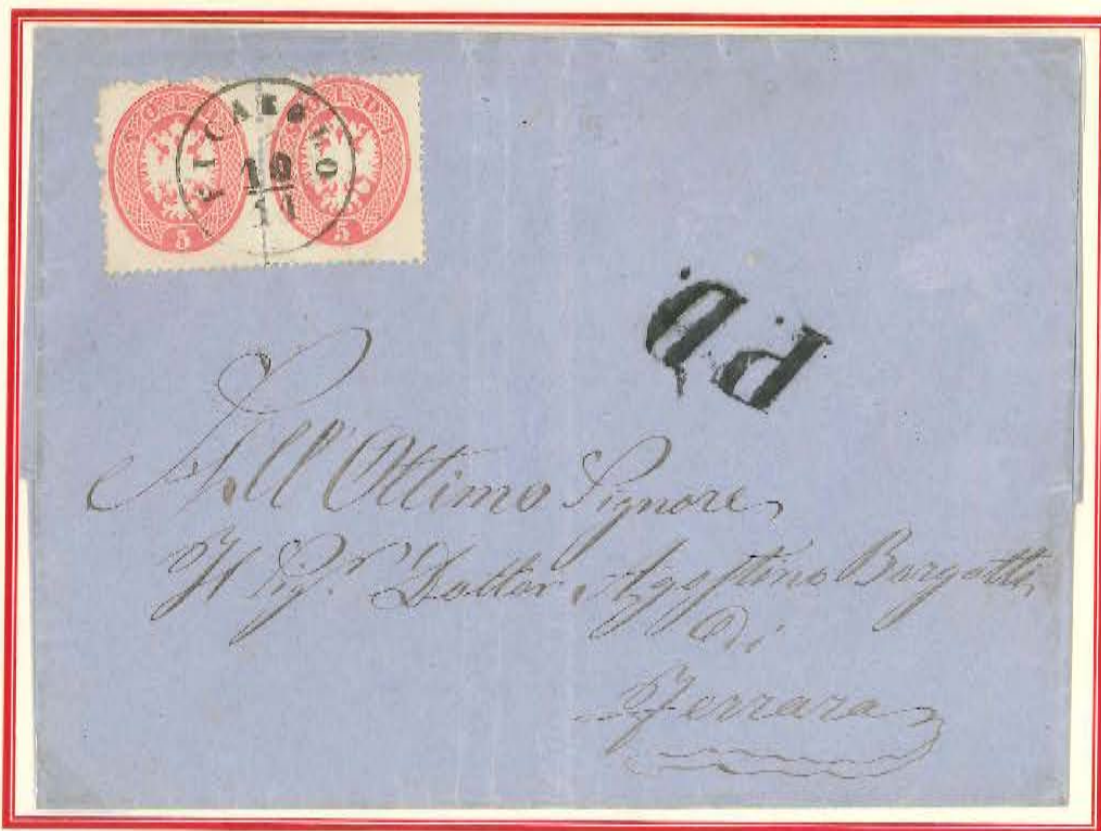 SOLDI SOLDI
5 5
FICAROLO
19
11
P.D.
All'Ottimo Signore
Il Sig.r Dottor Agostino Borgatti
Di
Ferrara